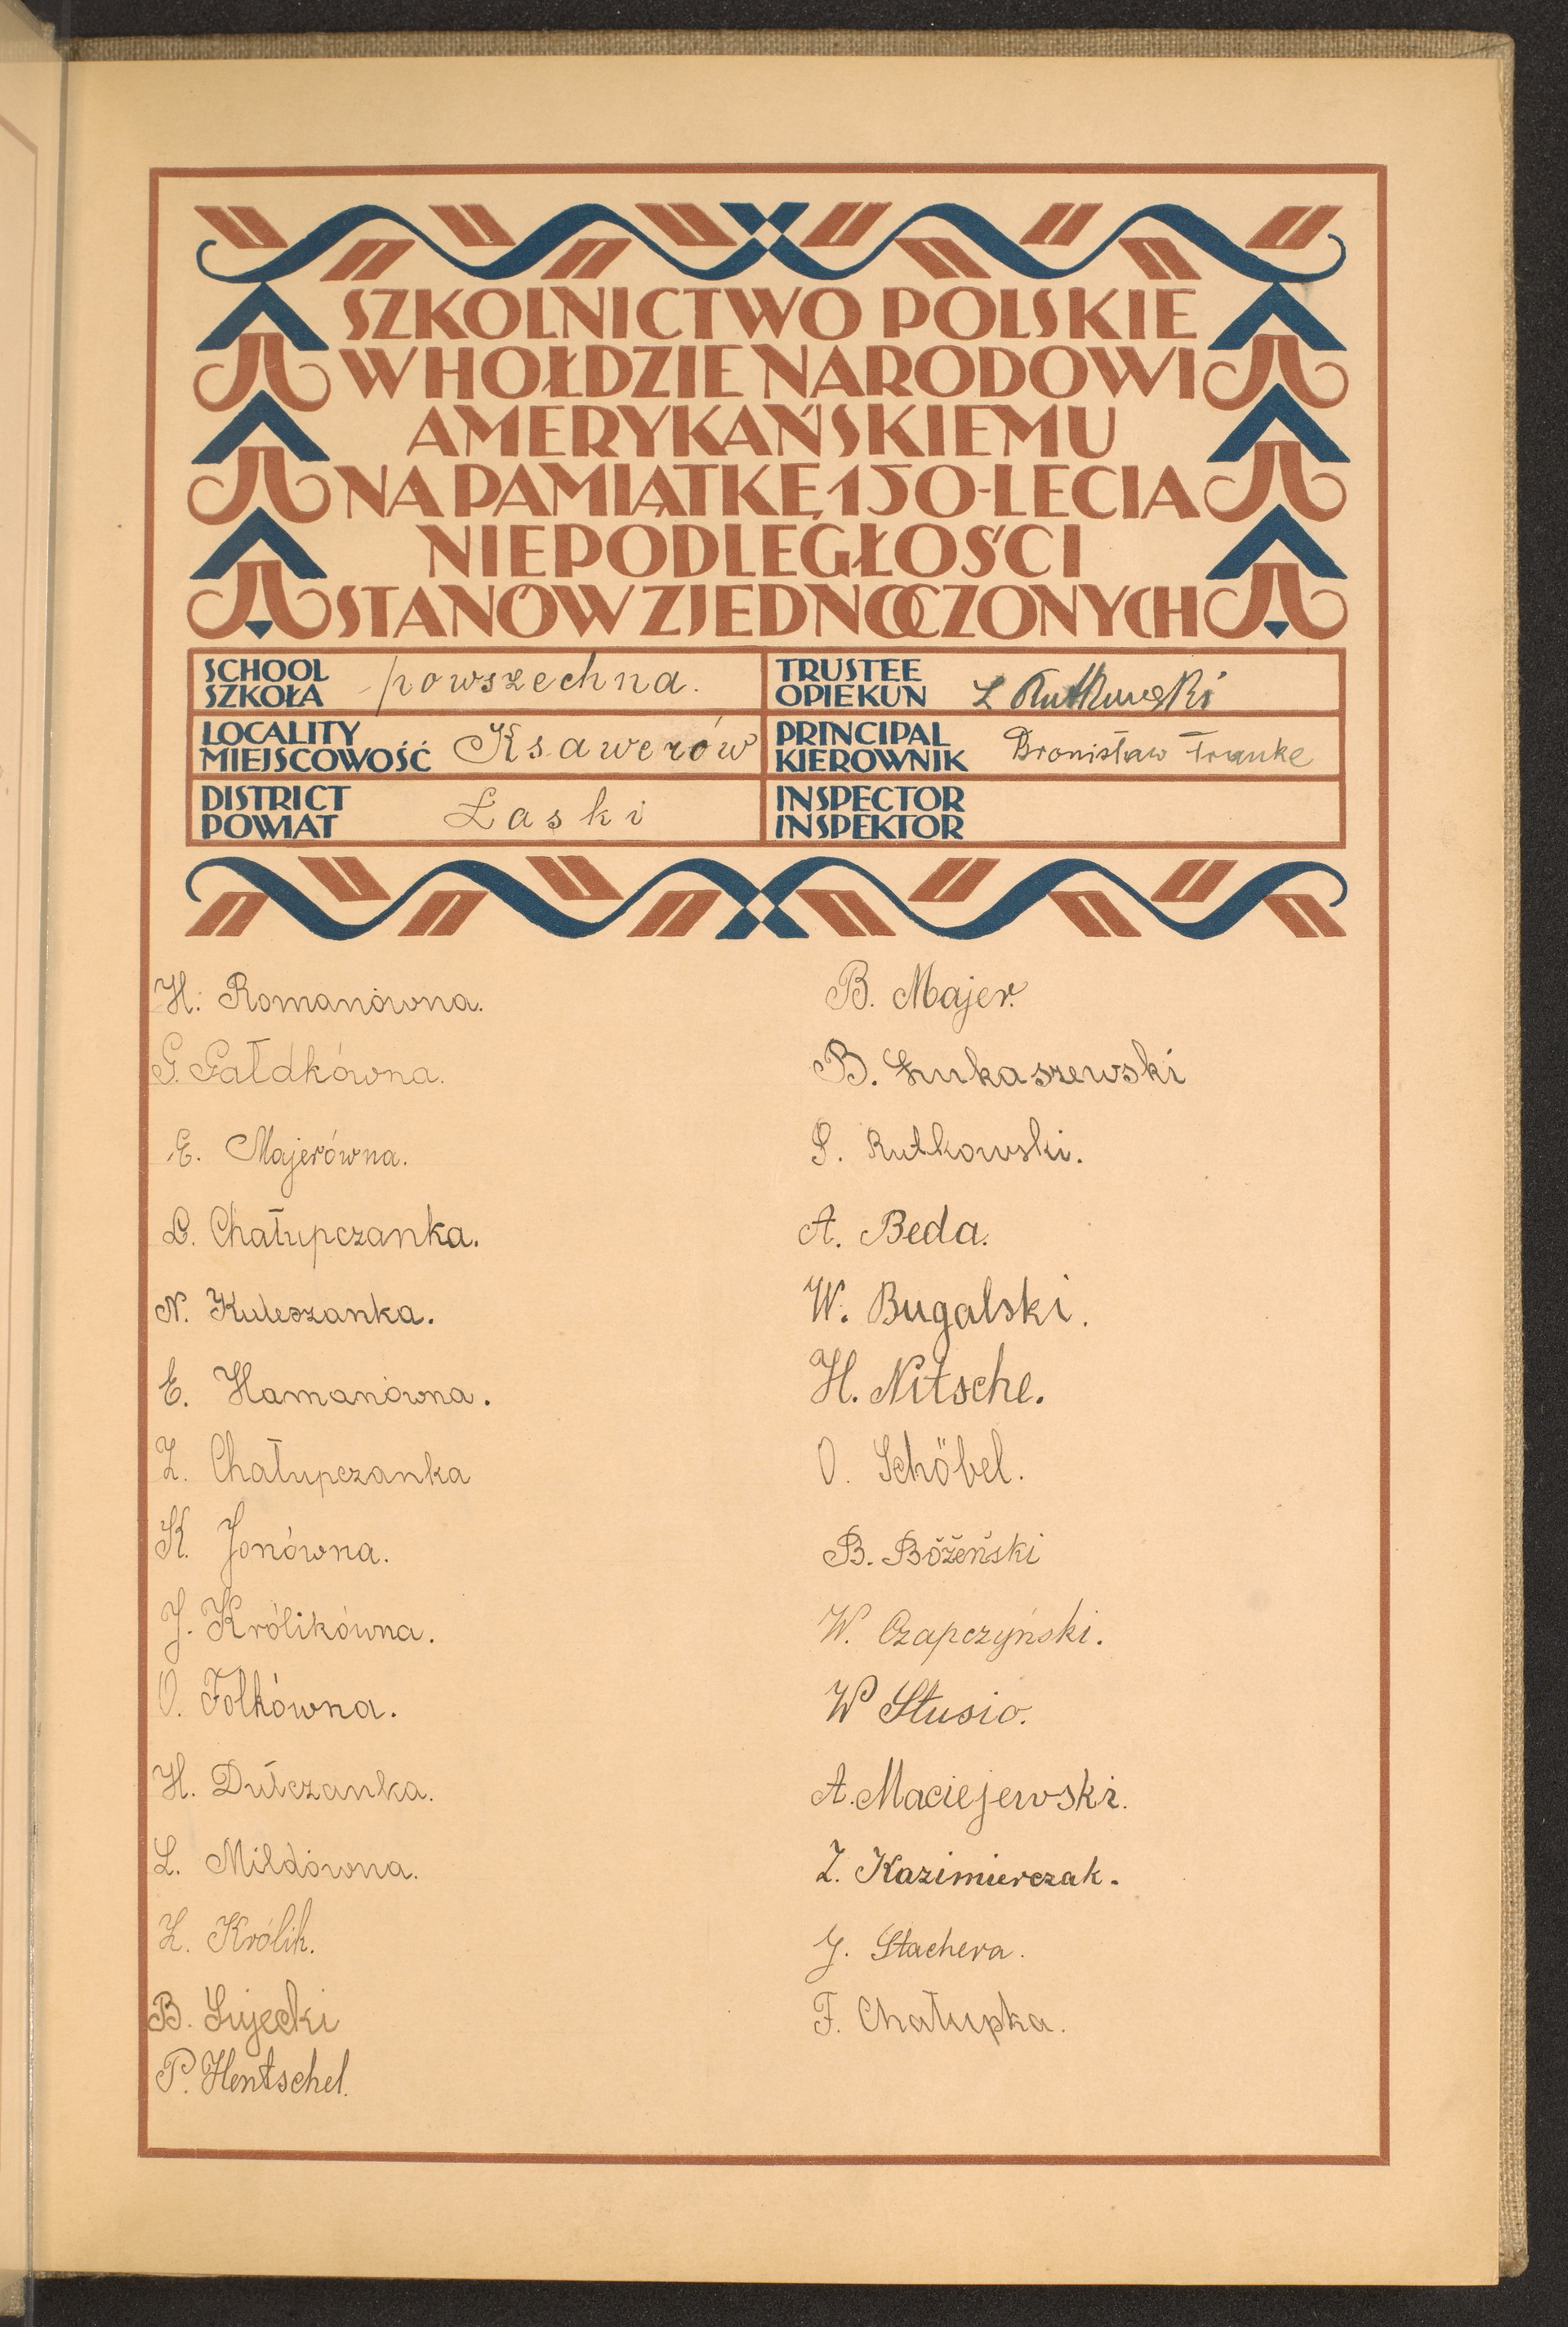 SZKOLNICTWO POLSKIE
W HOŁDZIE NARODOWI
AMERYKAŃSKIEMU
NA PAMIĄTKĘ 150-LECIA
NIEPODLEGŁOŚCI
STANÓW ZJEDNOCZONYCH
SCHOOL
SZKOŁA powszechna.
TRUSTEE
OPIEKUN L Rutkowski
LOCALITY
MIEJSCOWOŚĆ Ksawerów
PRINCIPAL
KIEROWNIK Bronisław Franke
DISTRICT
POWIAT Łaski
INSPECTOR
INSPEKTOR
H. Romanówna.
G. Gałdkówna.
E. Majerówna.
L. Chałupczanka.
N. Kuleszanka.
E. Hamanówna.
Z. Chałupczanka
K. Jonówna.
J. Królikówna.
O. Folkówna.
H. Dulczanka.
L. Mildówna.
Z. Królik.
B. Łujecki
P. Hentschel.
B. Majer.
B. Łukaszewski
S. Rutkowski.
A. Beda.
W. Bugalski.
H. Nitsche.
O. Schöbel.
B. Bóżeński
W. Czapczyński.
W Stusio.
A. Maciejewski.
Z. Kazimierczak.
J. Stachera.
F. Chałupka.